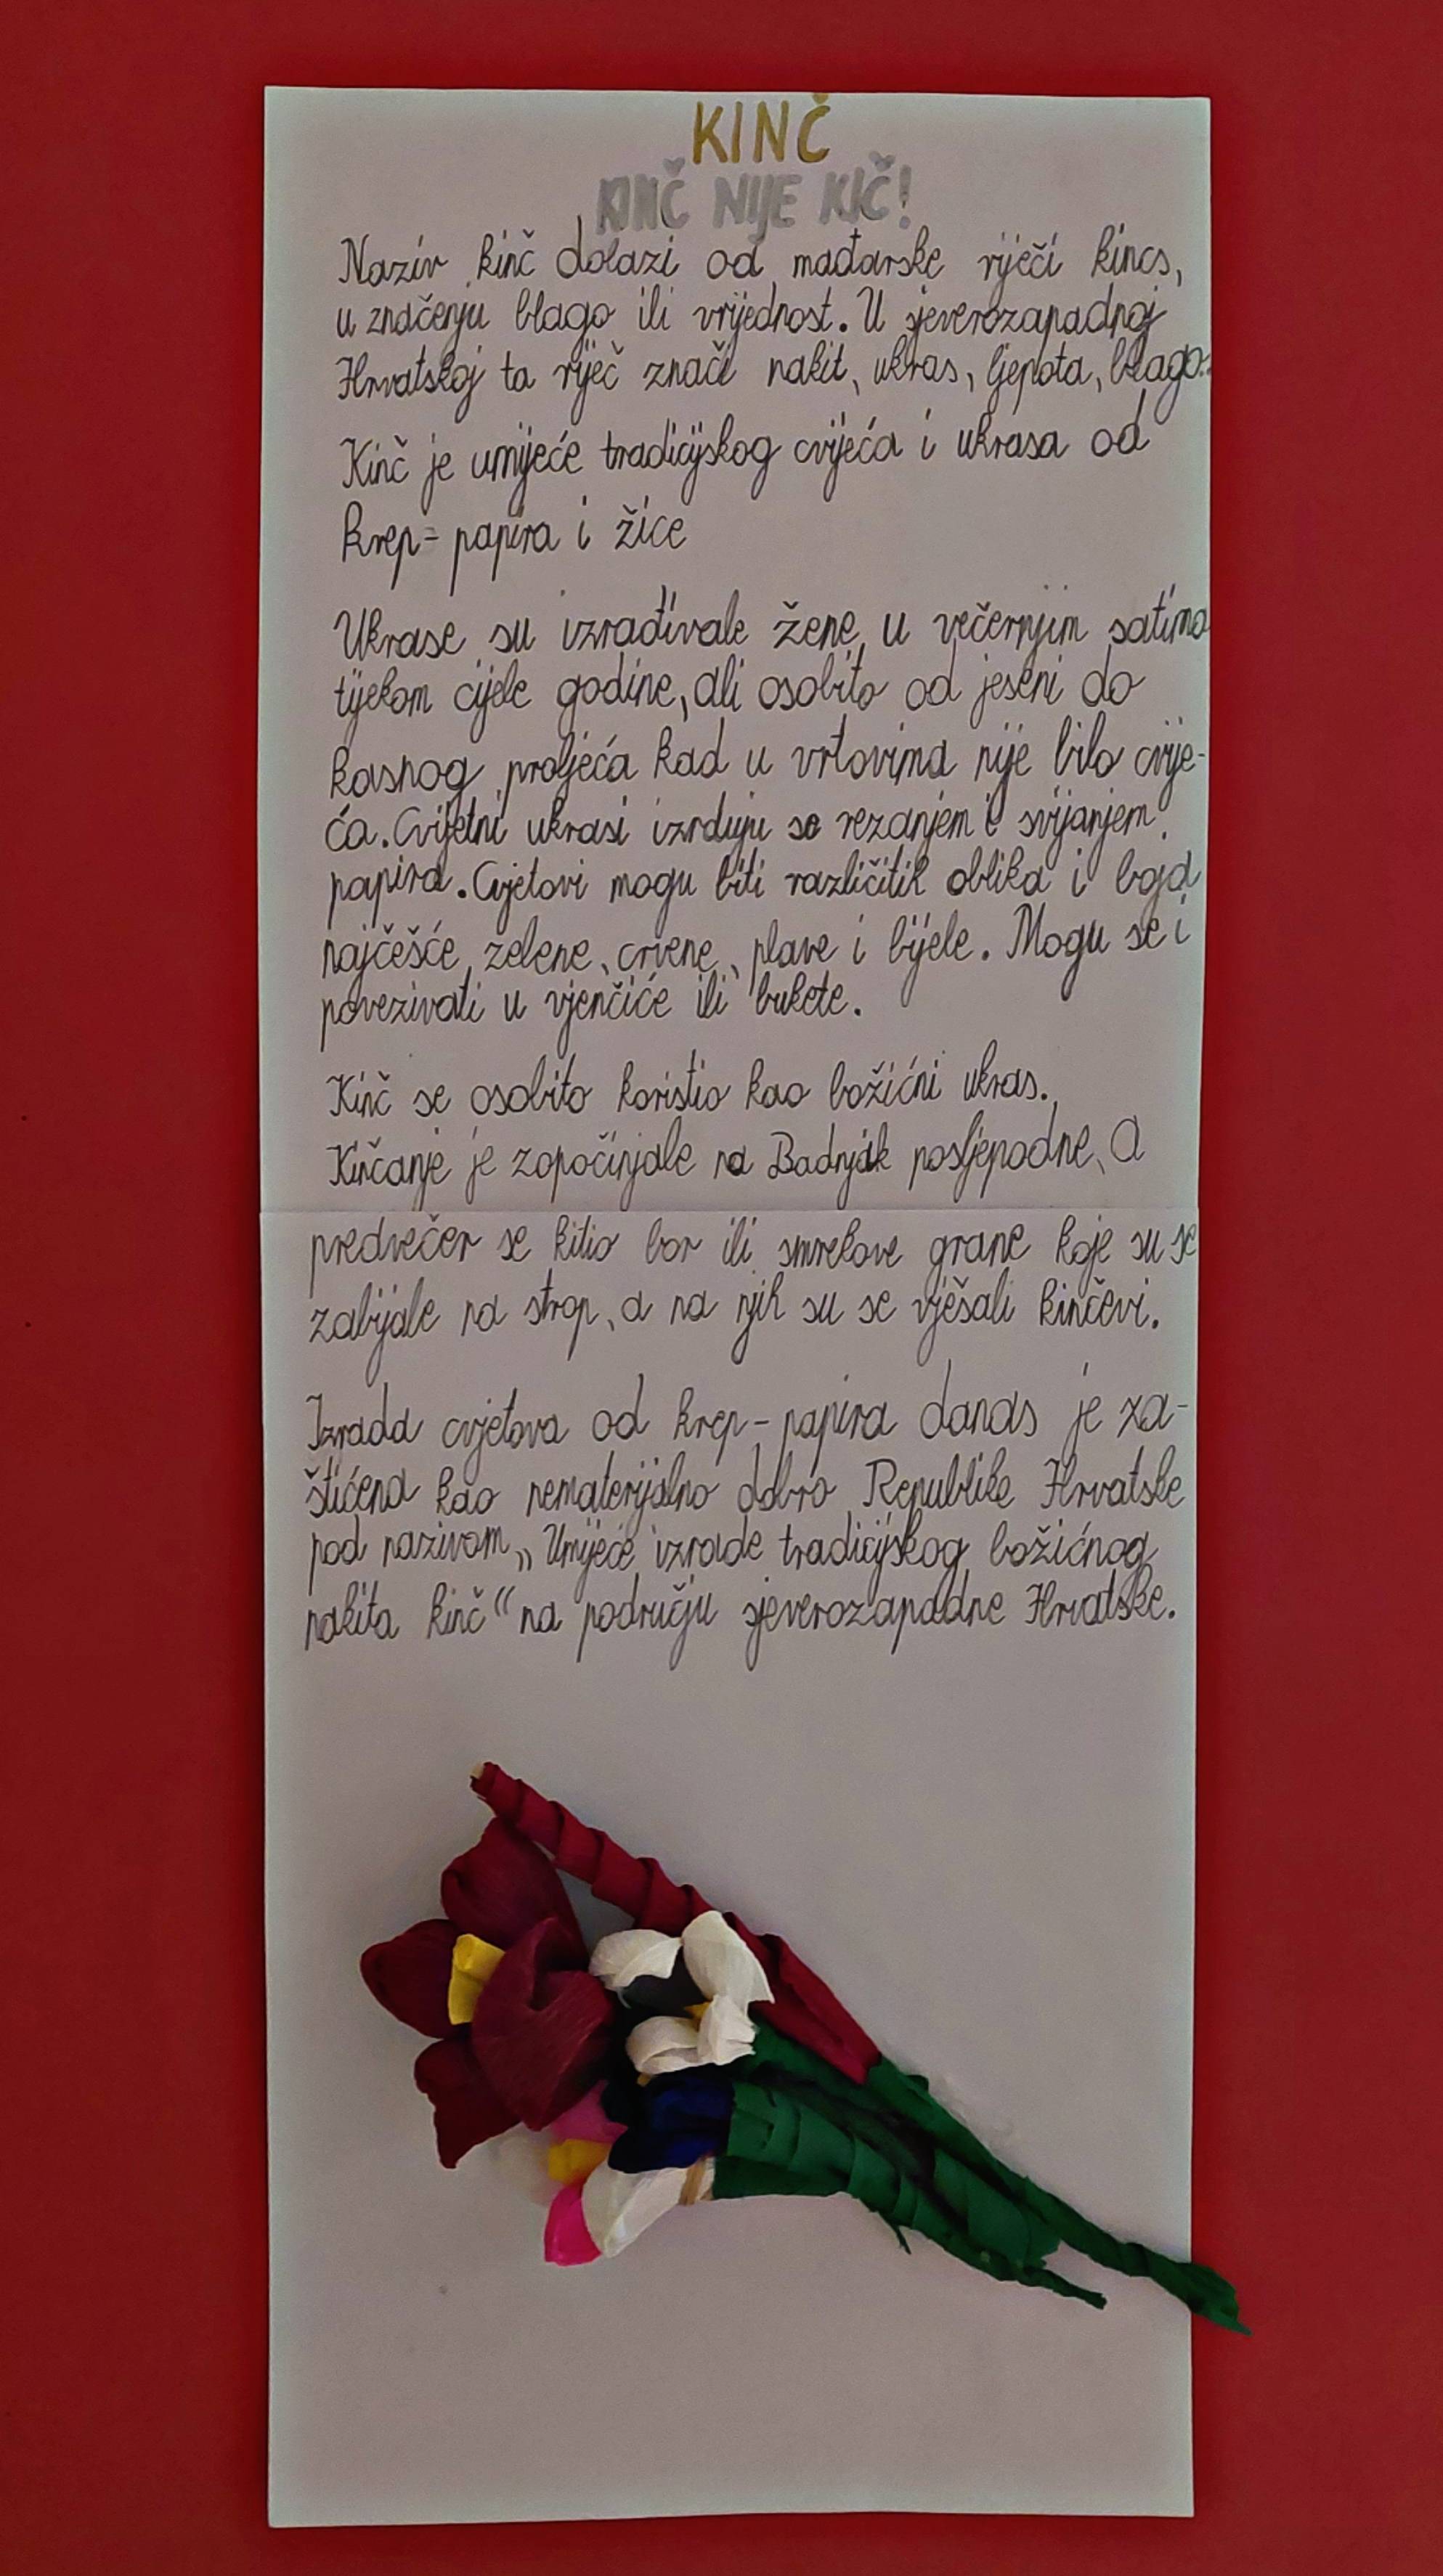 KINČ
KINČ NIJE KIČ!
Naziv kinč dolazi od mađarske riječi kincs,
u značenju blago ili vrijednost. U sjeverozapadnoj
Hrvatskoj ta riječ znači nakit, ukras, ljepota, blago..
Kinč je umijeće tradicijskog cvijeća i ukrasa od
krep-papira i žice
Ukrase su izrađivale žene u večernjim satima
tijekom cijele godine, ali osobito od jeseni do
kasnog proljeća kad u vrtovima nije bilo cvije-
ća. Cvijetni ukrasi izrđuju se rezanjem i svijanjem
papira. Cvjetovi mogu biti različitih oblika i boja
najčešće zelene, crvene, plave i bijele. Mogu se i
povezivati u vjenčiće ili bukete.
Kinč se osobito koristio kao božićni ukras.
Kinčanje je započinjale na Badnjak posljepodne, a
predvečer se kitio bor ili smrekove grane koje su se
zabijale na strop, a na njih su se vješali kinčevi.
Izrada cvjetova od krep-papira danas je za-
štićena kao nematerijalno dobro Republike Hrvatske
pod nazivom „Umijeće izrade tradicijskog božićnog
nakita kinč“ na području sjeverozapadne Hrvatske.